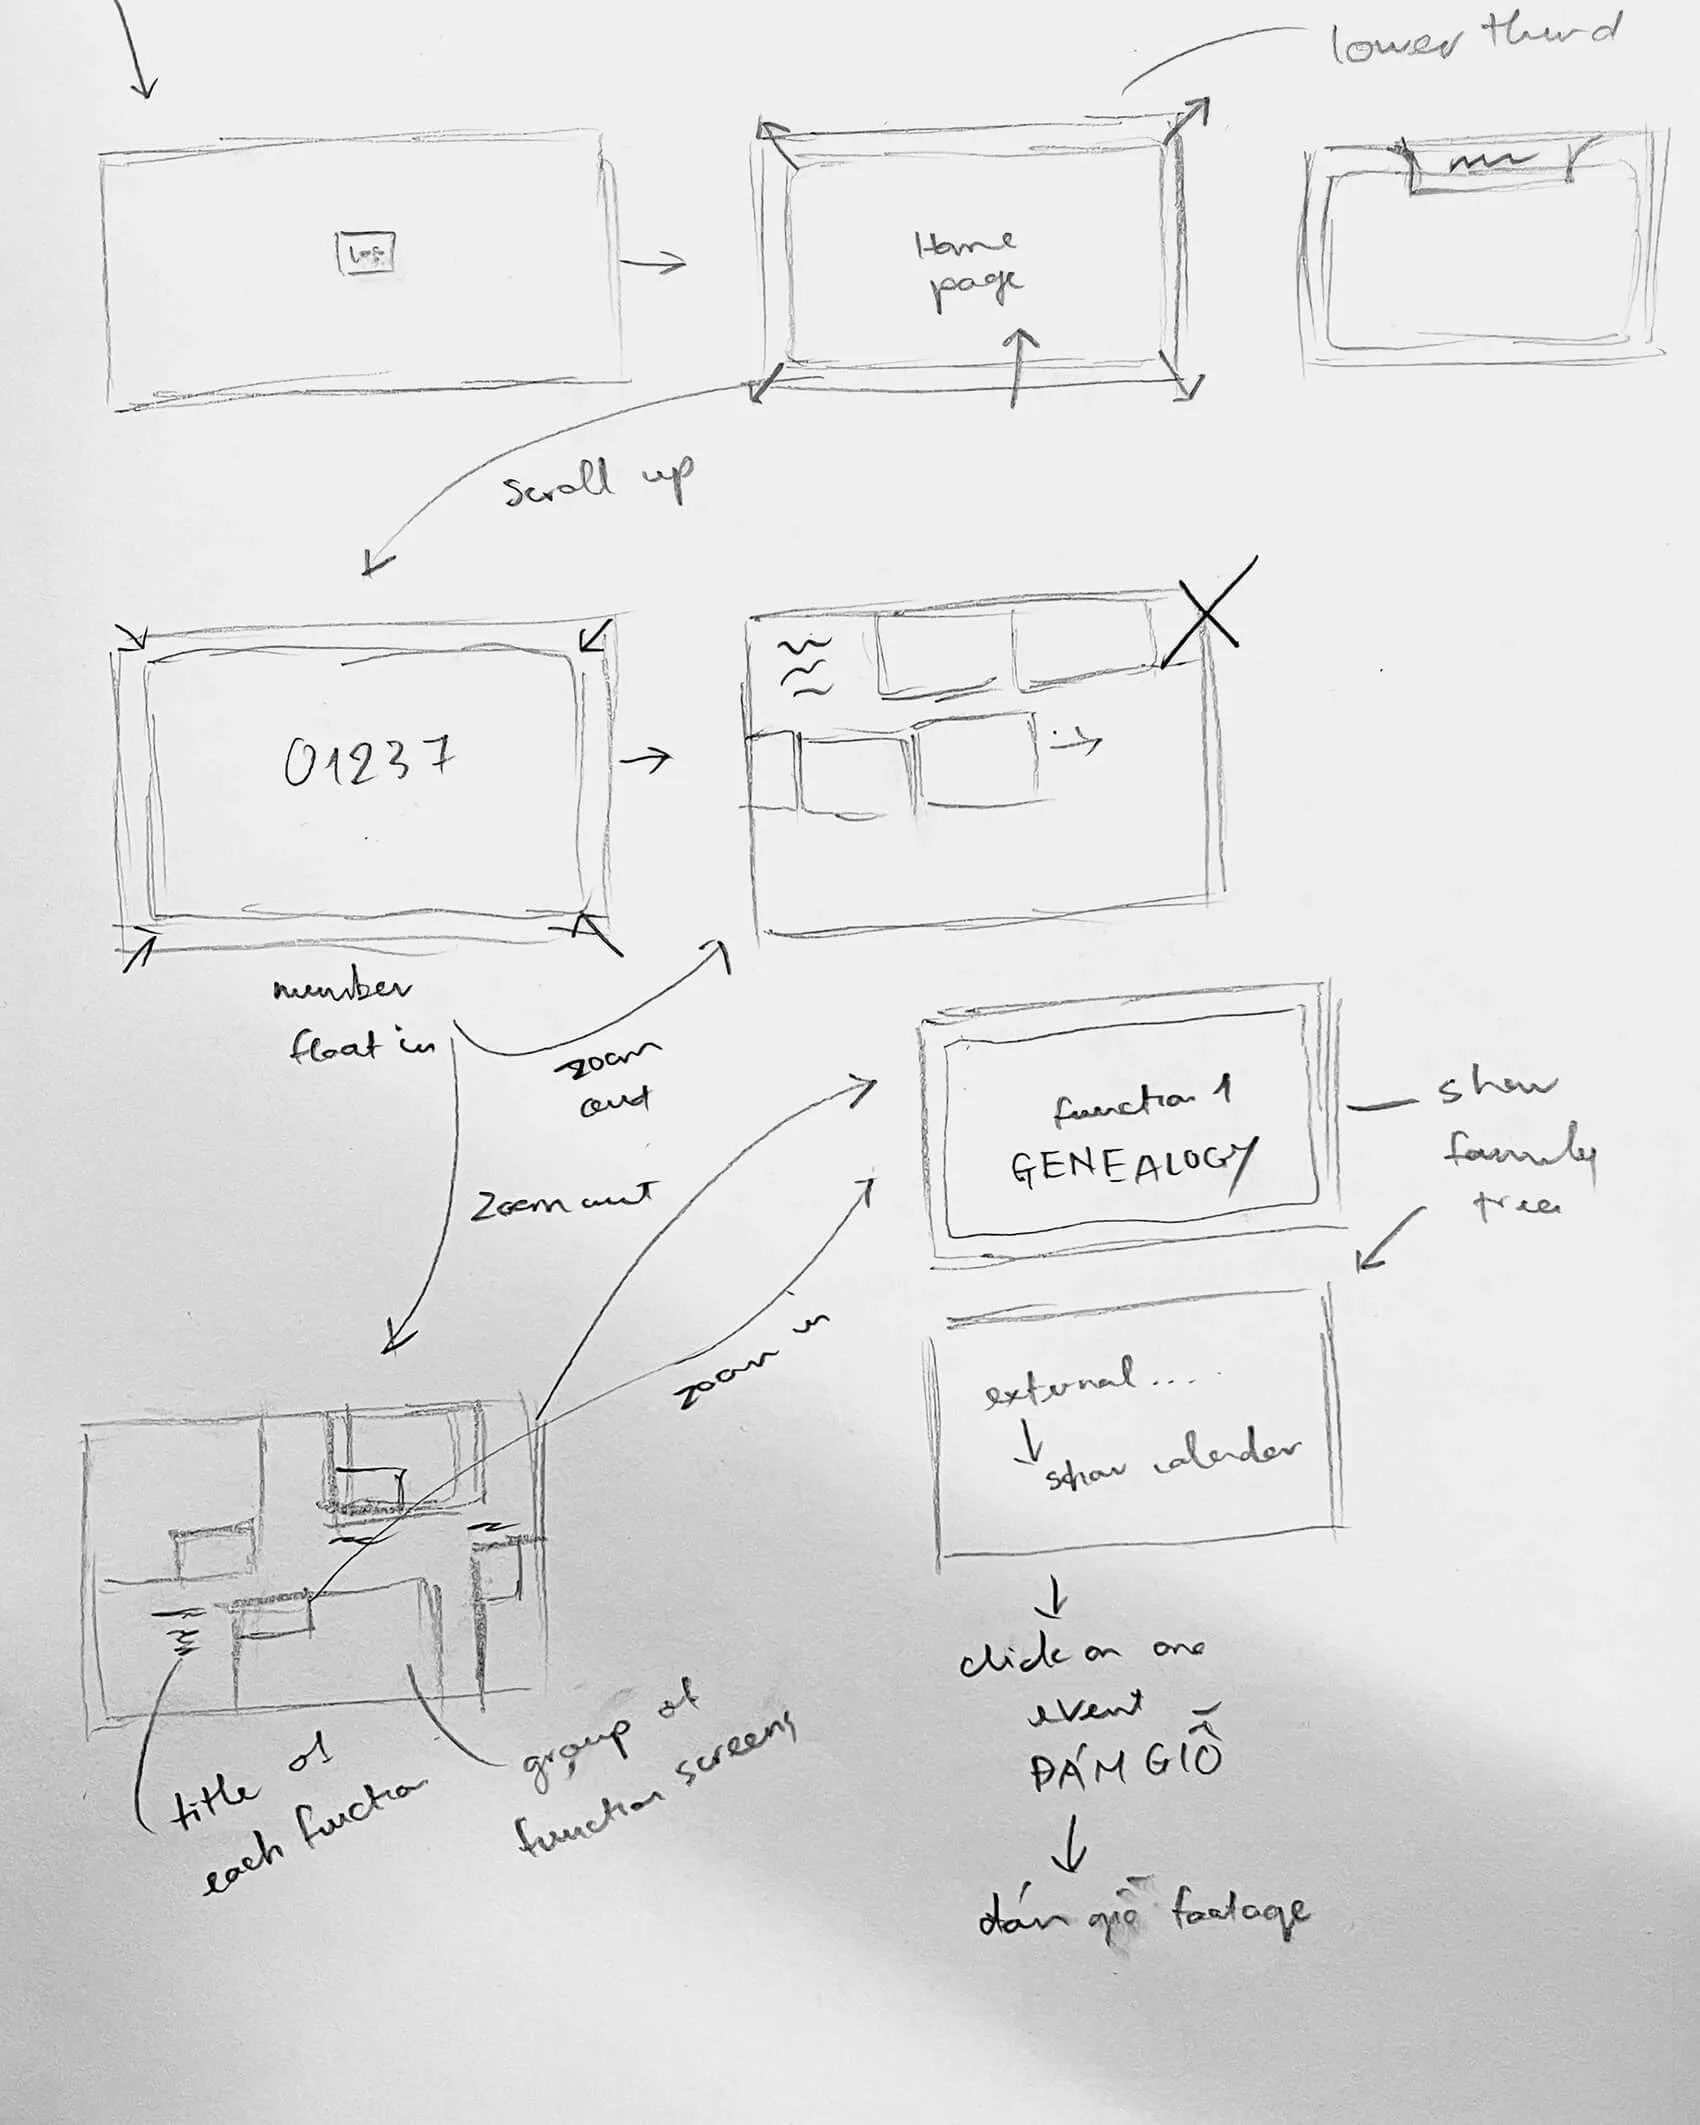 lower third
Logo
Home
page
scroll up
01237
number
float in
zoom
out
zoom out
zoom in
function 1
GENEALOGY
show
family
tree
external ....
show calender
click on one
event
ĐÁM GIỖ
đám giỗ footage
title of
each function
group of
function screens